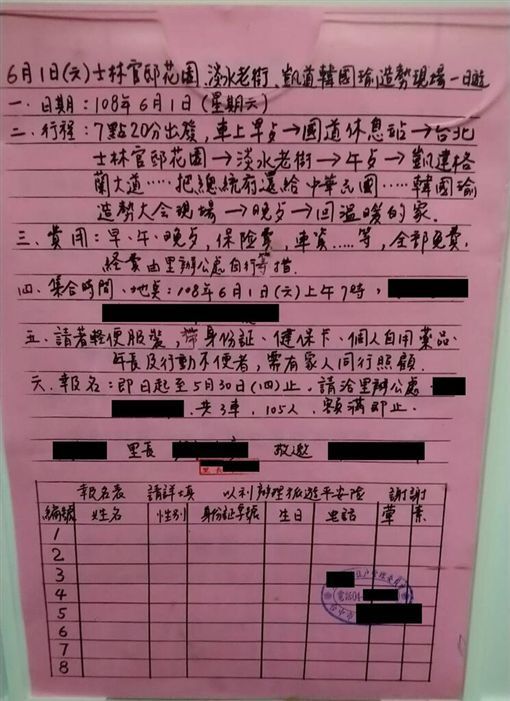 6月1日(六)士林官邸花園、淡水老街、凱道韓國瑜造勢現場一日遊
一、日期:108年6月1日(星期六)
二、行程:7點20分出發,車上早点→國道休息站→台北
士林官邸花園→淡水老街→午点→凱達格
蘭大道……把總統府還給中華民國……韓國瑜
造勢大会現場→晚点→回溫暖的家.
三、費用:早、午、晚点,保險費,車資.....等,全部免費.
経費由里辦公處自行籌措.
四、集合時間、地点:108年6月1日(六)上午7時,
五、請著輕便服裝,帶身份証、健保卡、個人自用薬品、
年長及行動不便者,需有家人同行照顧.
六、報名:即日起至5月30日(四)止.請洽里辦公處
.共3車.105人.額滿即止.
里長 敬邀
里長
報名表 請詳填 以利辦理旅遊平安險 謝謝
編號 姓名 性別 身份証字號 生日 电話 葷 素
1
2
3
4
電話04-
5
6
7
8